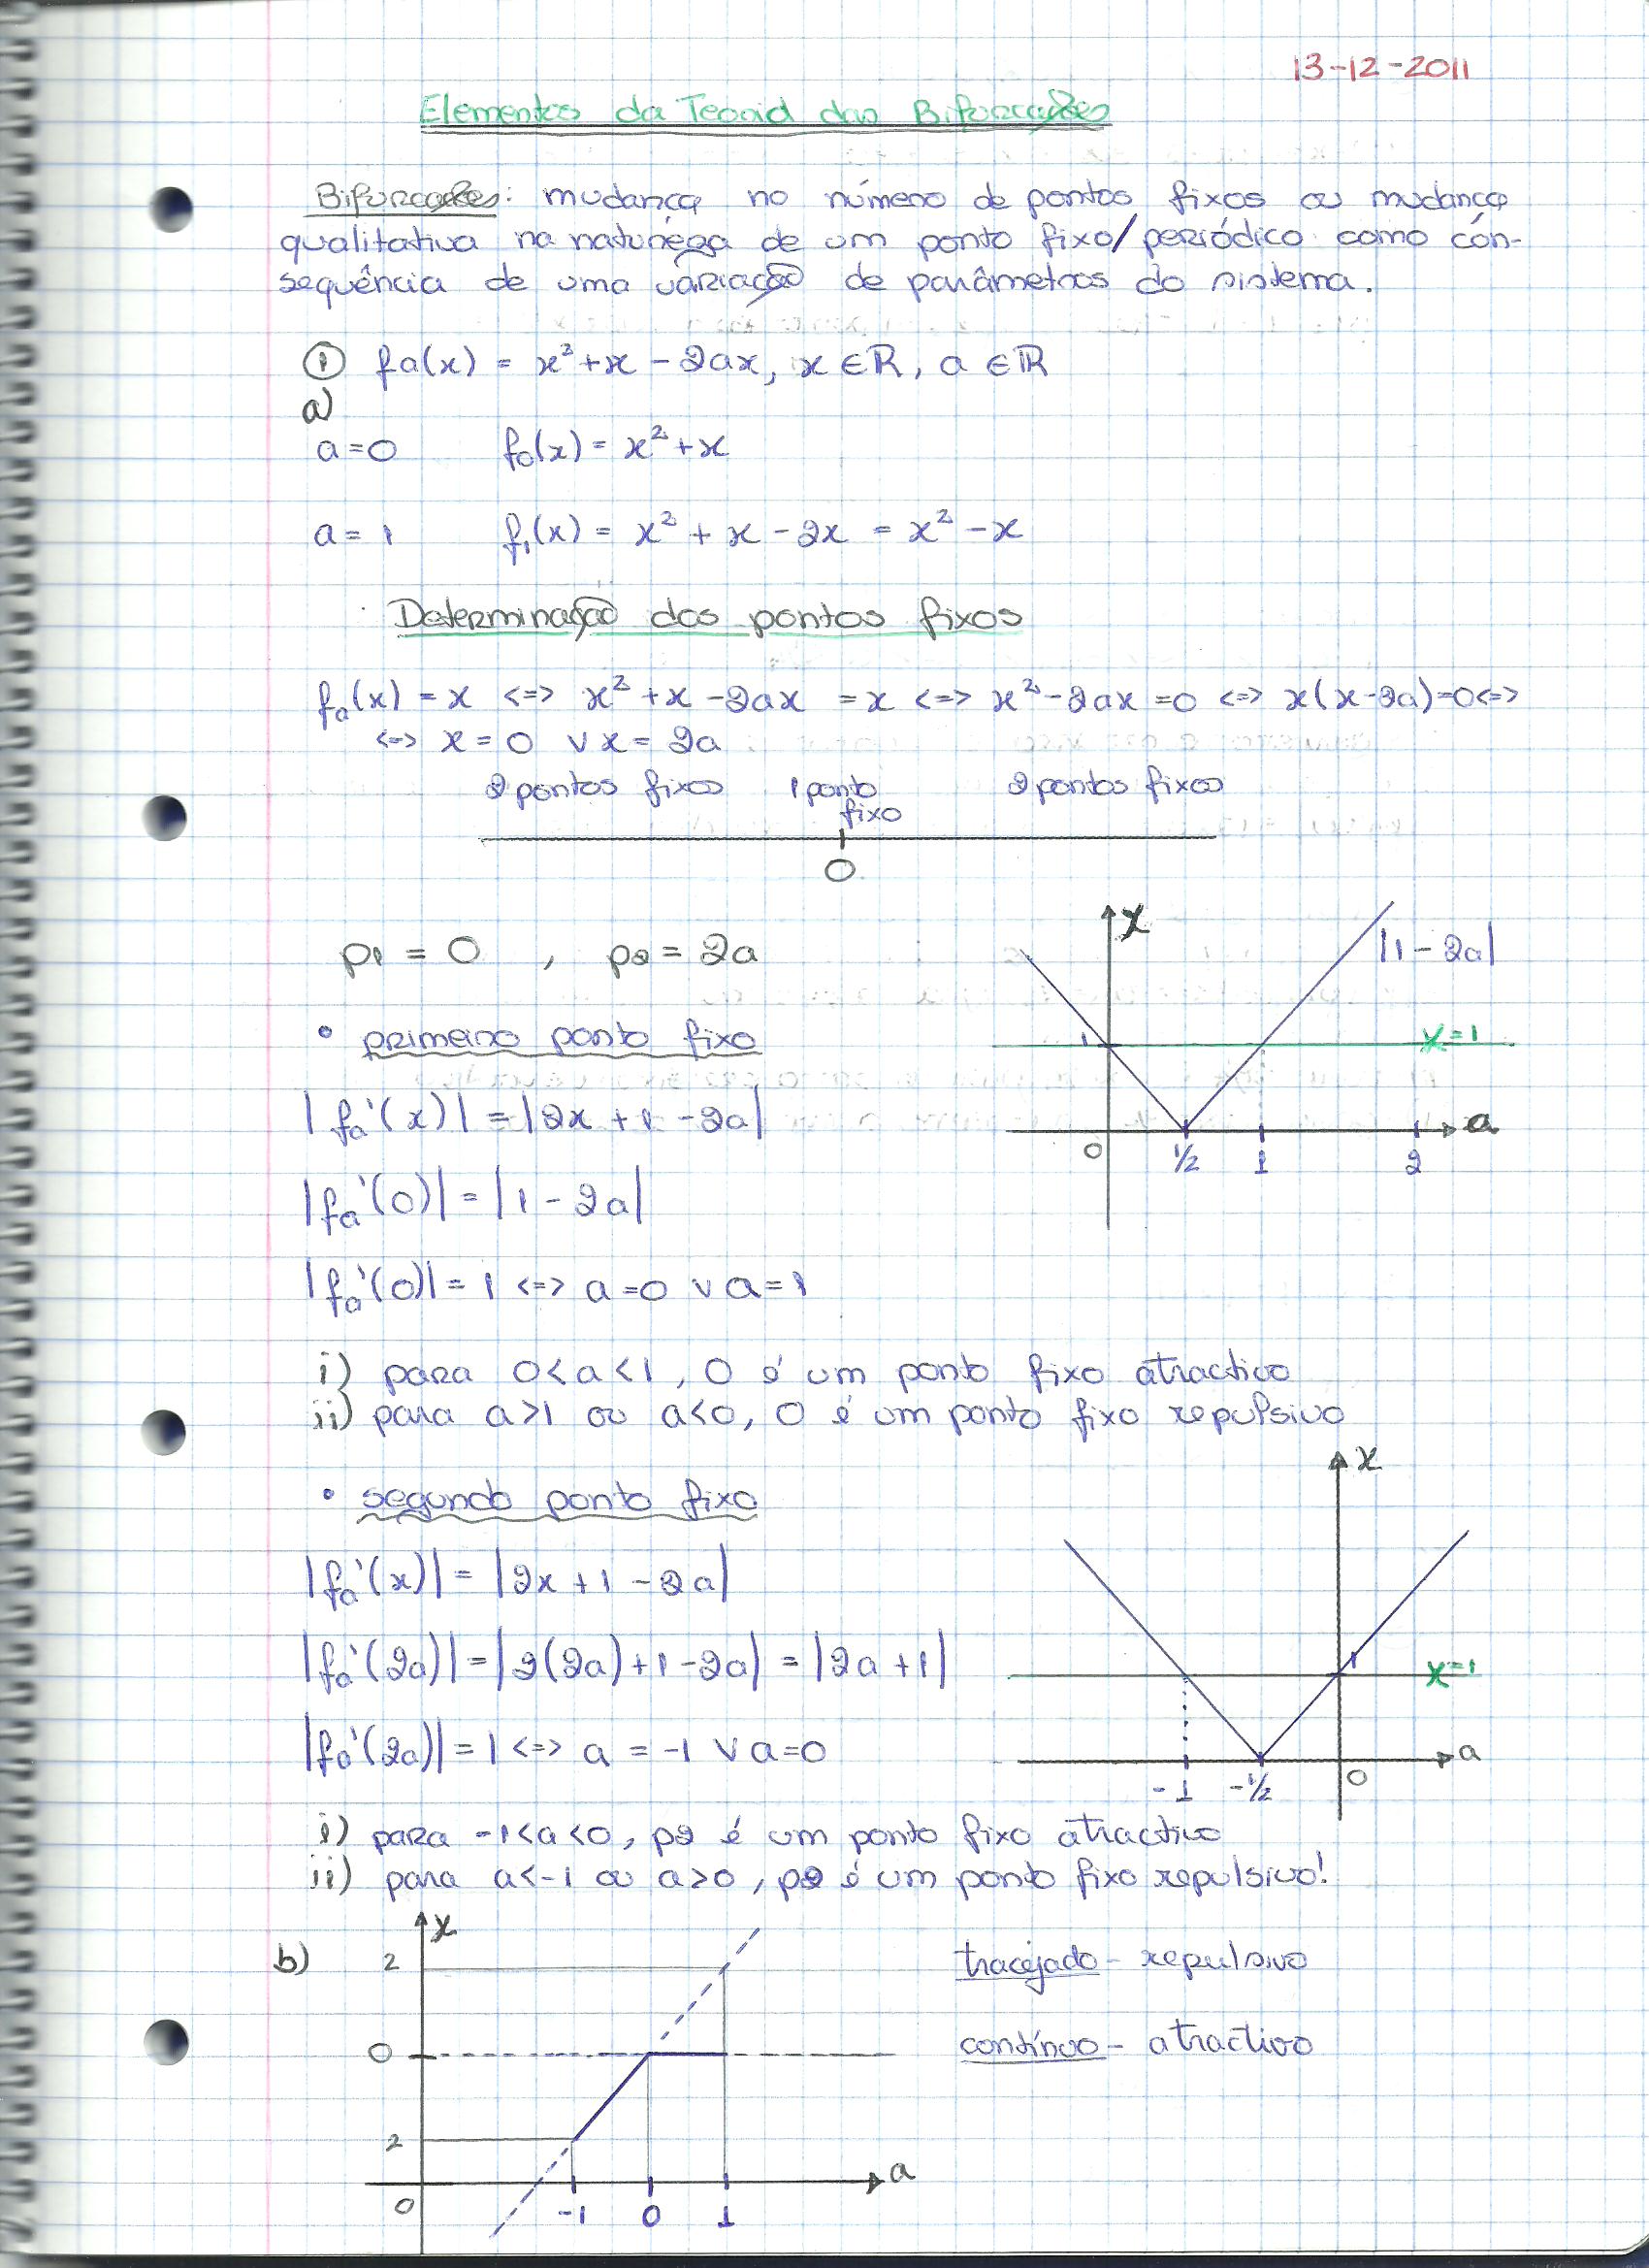 13-12-2011
Elementos da Teoria das Bifurcações
Bifurcações: mudança no número de pontos fixos ou mudança
qualitativa na natureza de um ponto fixo/periódico como con-
sequência de uma variação de parâmetros do sistema.
① fa(x) = x² + x - 2ax, x ∈ ℝ, a ∈ ℝ
a)
a = 0 f₀(x) = x² + x
a = 1 f₁(x) = x² + x - 2x = x² - x
Determinação dos pontos fixos
fa(x) = x <=> x² + x - 2ax = x <=> x² - 2ax = 0 <=> x(x-2a)=0 <=>
<=> x = 0 ∨ x = 2a
2 pontos fixos 1 ponto fixo 2 pontos fixos
0
p1 = 0 , p2 = 2a
x
|1 - 2a|
• primeiro ponto fixo
1 x=1
|fa'(x)| = |2x + 1 - 2a|
a
0 1/2 1 2
|fa'(0)| = |1 - 2a|
|fa'(0)| = 1 <=> a = 0 ∨ a = 1
i) para 0 < a < 1, 0 é um ponto fixo atractivo
ii) para a > 1 ou a < 0, 0 é um ponto fixo repulsivo
x
• segundo ponto fixo
|fa'(x)| = |2x + 1 - 2a|
|fa'(2a)| = |2(2a) + 1 - 2a| = |2a + 1|
1 x=1
|fa'(2a)| = 1 <=> a = -1 ∨ a = 0
a
-1 -1/2 0
i) para -1 < a < 0, p2 é um ponto fixo atractivo
ii) para a < -1 ou a > 0, p2 é um ponto fixo repulsivo!
b) x
2
tracejado - repulsivo
0
contínuo - atractivo
2
a
0 -1 0 1